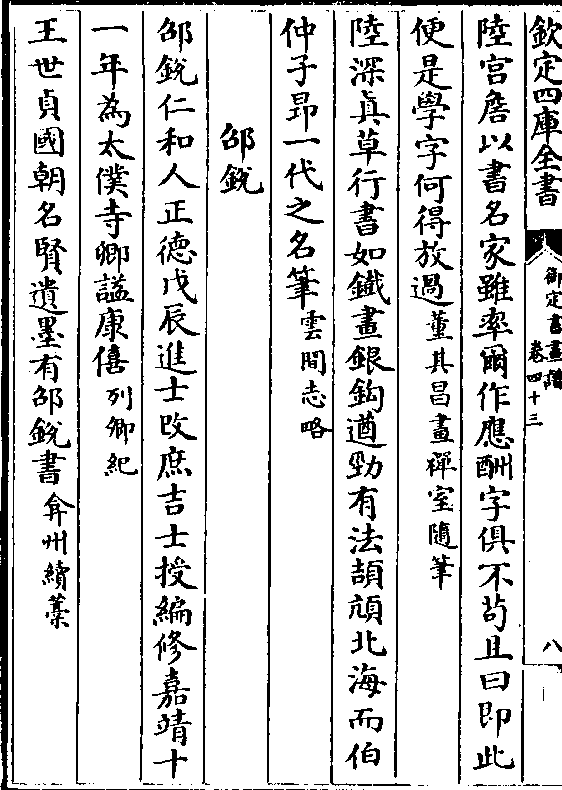 欽定四庫全書
御定書畫譜
卷四十三
八
陸宫詹以書名家雖率爾作應酬字俱不苟且曰即此
便是學字何得放過董其昌畫禪室隨筆
陸深真草行書如鐵畫銀鈎遒勁有法頡頏北海而伯
仲子昂一代之名筆雲間志略
邵銳
邵銳仁和人正德戊辰進士改庶吉士授編修嘉靖十
一年為太僕寺卿諡康僖列卿紀
王世貞國朝名賢遺墨有邵銳書弇州續藁